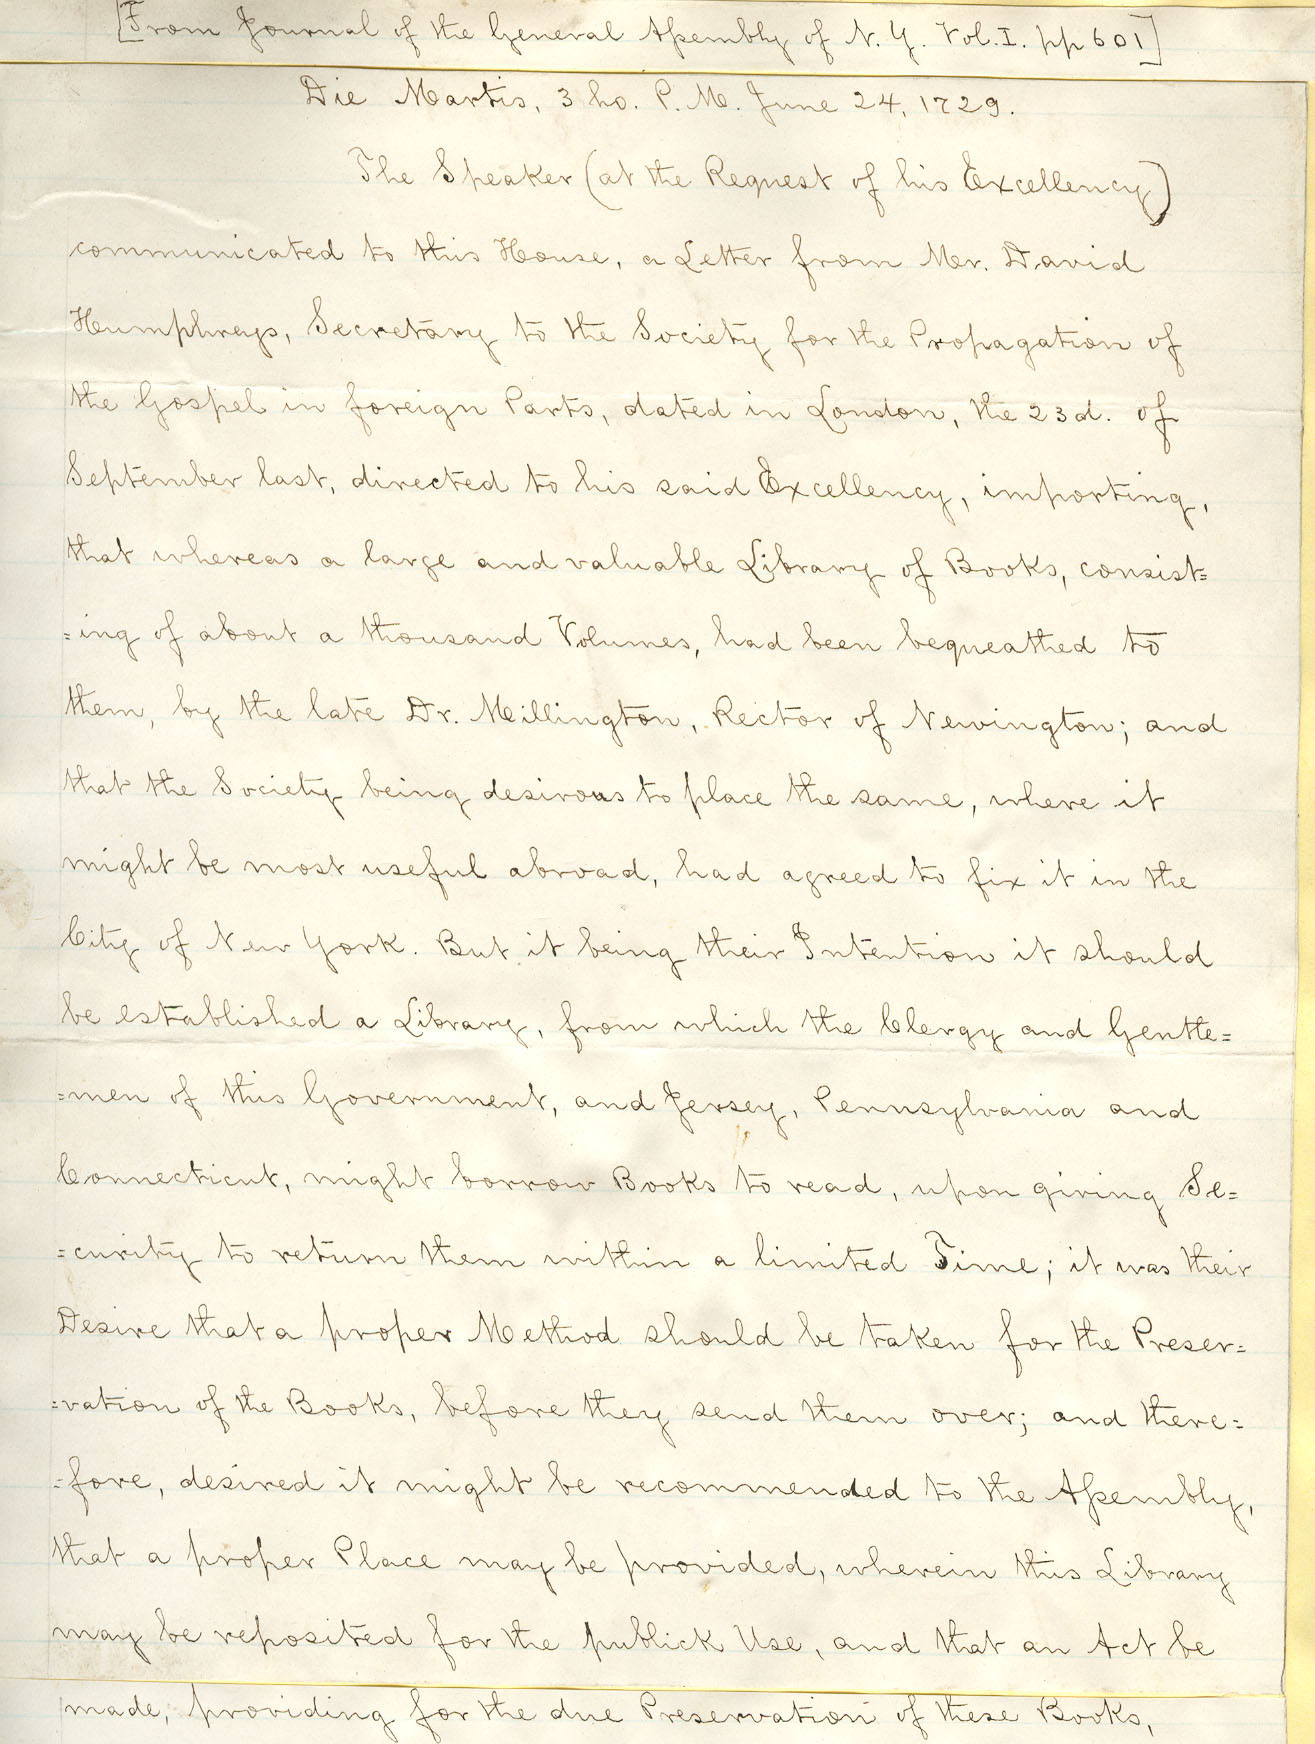 [From Journal of the General Aſsembly of N. Y. Vol. I. pp 601]
Die Martis, 3 ho. P. M. June 24, 1729.
The Speaker (at the Request of his Excellency)
communicated to this House, a Letter from Mr. David
Humphreys, Secretary to the Society for the Propagation of
the Gospel in foreign Parts, dated in London, the 23d. of
September last, directed to his said Excellency, importing,
that whereas a large and valuable Library of Books, consist=
=ing of about a thousand Volumes, had been bequeathed to
them, by the late Dr. Millington, Rector of Newington; and
that the Society being desirous to place the same, where it
might be most useful abroad, had agreed to fix it in the
City of New York. But it being their Intention it should
be established a Library, from which the Clergy and Gentle=
=men of this Government, and Jersey, Pennsylvania and
Connecticut, might borrow Books to read, upon giving Se=
=curity to return them within a limited Time; it was their
Desire that a proper Method should be taken for the Preser=
=vation of the Books, before they send them over; and there=
=fore, desired it might be recommended to the Aſsembly,
that a proper Place may be provided, wherein this Library
may be reposited for the publick Use, and that an Act be
made, providing for the due Preservation of these Books,